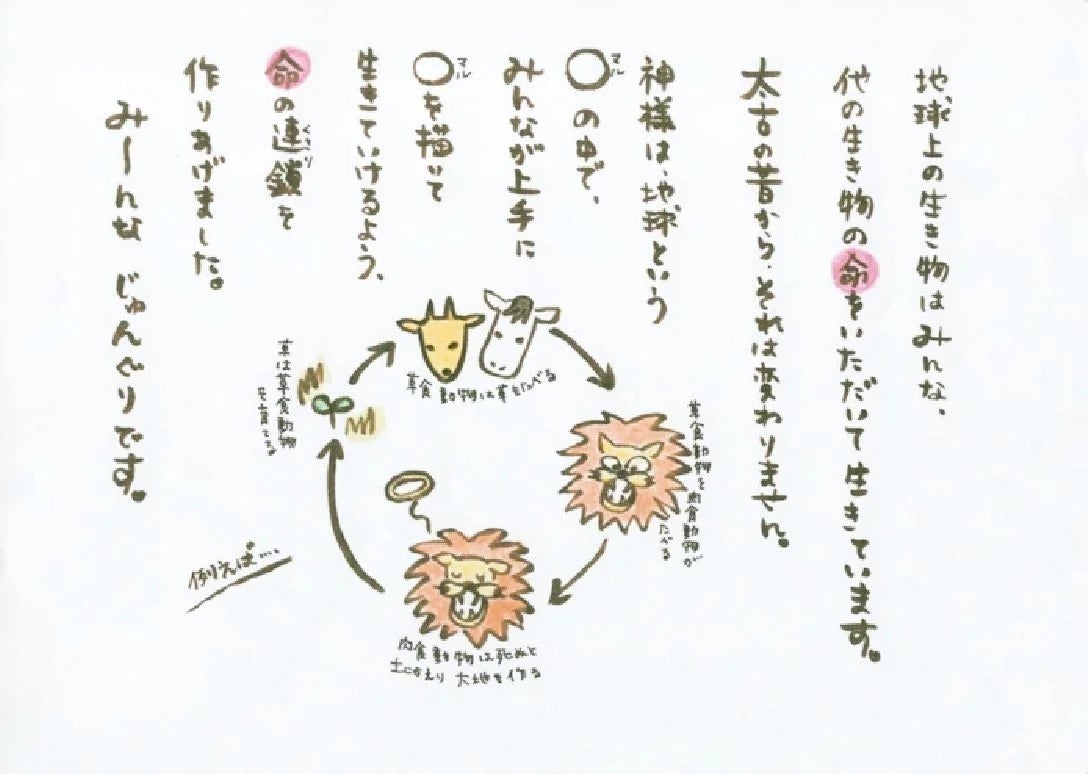 地球上の生き物はみんな、
代の生き物の命をいただいて生きています。
太古の昔から、それは変わりません。
神様は、地球という
○の中で、
マル
みんなが上手に
○を描いて
マル
生きていけるよう、
命の連鎖を
くさり
作りあげました。
みーんな じゅんぐりです。
草食動物は草をたべる
草食動物を肉食動物が
たべる
肉食動物は死ぬと
土にかえり 大地を作る
草は草食動物
を育てる
例えば…